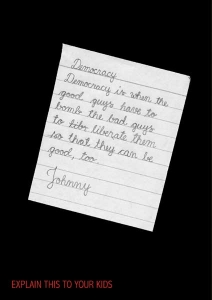 Democracy
Democracy is when the
good guys have to
bomb the bad guys
to liberate them
so that they can be
good, too.
Johnny
EXPLAIN THIS TO YOUR KIDS